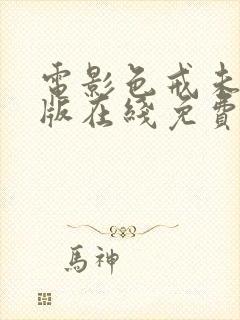 電影色戒未
版在綫免費
馬神